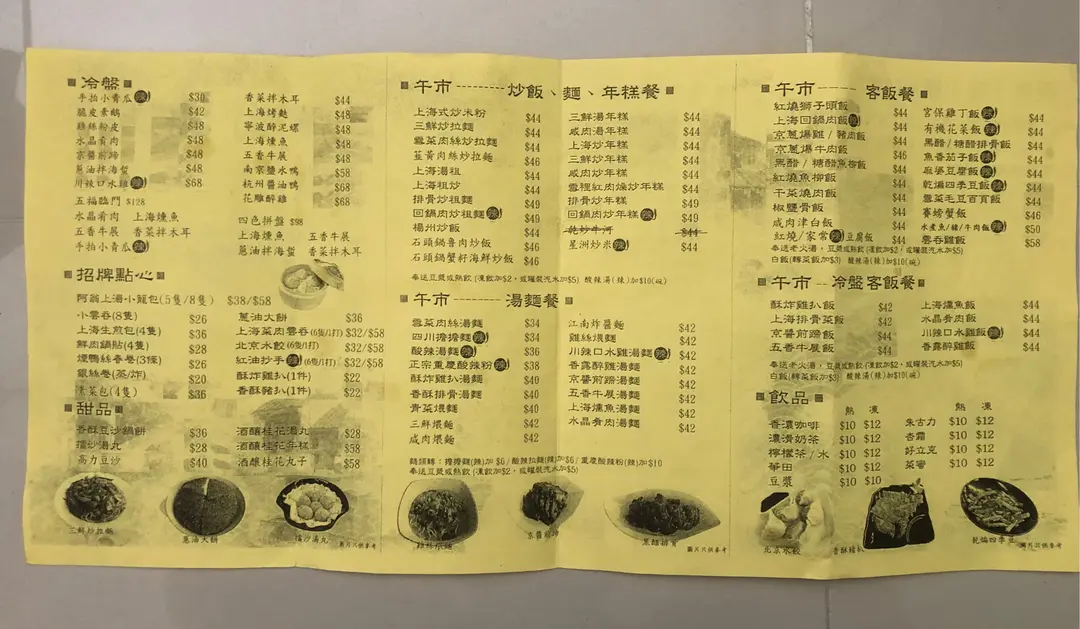 冷盤
手拍小青瓜(辣) $30
脆皮素鵝 $42
雞絲粉皮 $48
水晶肴肉 $48
京醬前蹄 $48
蔥油拌海蜇 $48
川辣口水雞(辣) $68
五福臨門 $128
水晶肴肉 上海燻魚
五香牛展 香菜拌木耳
手拍小青瓜(辣)
香菜拌木耳 $44
上海烤麩 $48
寧波醉泥螺 $48
上海燻魚 $48
五香牛展 $48
南京鹽水鴨 $58
杭州醬油鴨 $68
花雕醉雞 $68
四色拼盤 $98
上海燻魚 五香牛展
蔥油拌海蜇 香菜拌木耳
招牌點心
阿翁上湯小籠包(5隻/8隻) $38/$58
小雲吞(8隻) $26
上海生煎包(4隻) $36
鮮肉鍋貼(4隻) $28
燻鴨絲春卷(3條) $26
銀絲卷(蒸/炸) $20
素菜包(4隻) $36
蔥油大餅 $36
上海菜肉雲吞(6隻/1打) $32/$58
北京水餃(6隻/1打) $32/$58
紅油抄手(辣)(6隻/1打) $32/$58
酥炸雞扒(1件) $22
香酥豬扒(1件) $22
甜品
香酥豆沙鍋餅 $36
擂沙湯丸 $28
高力豆沙 $40
酒釀桂花湯丸 $28
酒釀桂花年糕 $58
酒釀桂花丸子 $58
三鮮炒拉麵
蔥油大餅
擂沙湯丸
圖片只供參考
午市 -------- 炒飯、麵、年糕餐
上海式炒米粉 $44
三鮮炒拉麵 $44
雪菜肉絲炒拉麵 $44
韮黃肉絲炒拉麵 $44
上海湯粗 $44
上海粗炒 $44
排骨炒粗麵 $49
回鍋肉炒粗麵(辣) $49
楊州炒飯 $44
石頭鍋魯肉炒飯 $46
石頭鍋蟹籽海鮮炒飯 $46
三鮮湯年糕 $44
咸肉湯年糕 $44
上海炒年糕 $44
三鮮炒年糕 $44
咸肉炒年糕 $44
雪裡紅肉燥炒年糕 $44
排骨炒年糕 $49
回鍋肉炒年糕(辣) $49
乾炒牛河 $44
星洲炒米(辣) $44
奉送豆漿或熱飲(凍飲加$2，或罐裝汽水加$5) 酸辣湯(辣)加$10(碗)
午市 -------- 湯麵餐
雪菜肉絲湯麵 $34
四川擔擔麵(辣) $34
酸辣湯麵(辣) $36
正宗重慶酸辣粉(辣) $38
酥炸雞扒湯麵 $40
香酥排骨湯麵 $40
青菜煨麵 $40
三鮮煨麵 $42
咸肉煨麵 $42
江南炸醬麵 $42
雞絲煨麵 $42
川辣口水雞湯麵(辣) $42
香露醉雞湯麵 $42
京醬前蹄湯麵 $42
五香牛展湯麵 $42
上海燻魚湯麵 $42
水晶肴肉湯麵 $42
轉擔擔麵(辣)加$6/酸辣拉麵(辣)加$6/重慶酸辣粉(辣)加$10
奉送豆漿或熱飲(凍飲加$2，或罐裝汽水加$5)
雞絲煨麵
京醬前蹄
圖片只供參考
午市 ----- 客飯餐
紅燒獅子頭飯
上海回鍋肉飯(辣) $44
京蔥爆雞/豬肉飯 $44
京蔥爆牛肉飯 $46
黑醋/糖醋魚柳飯 $44
紅燒魚柳飯 $44
干菜燒肉飯 $44
椒鹽骨飯 $44
咸肉津白飯 $44
紅燒/家常(辣)豆腐飯 $44
宮保雞丁飯(辣) $44
有機花菜飯(辣) $44
黑醋/糖醋排骨飯 $44
魚香茄子飯(辣) $44
麻婆豆腐飯(辣) $44
乾煸四季豆飯(辣) $44
雪菜毛豆百頁飯 $44
賽螃蟹飯 $46
水煮魚/豬/牛肉飯(辣) $50
雲吞雞飯 $58
奉送老火湯，豆漿或熱飲(凍飲加$2，或罐裝汽水加$5)
白飯(轉菜飯加$3) 酸辣湯(辣)加$10(碗)
午市 -- 冷盤客飯餐
酥炸雞扒飯 $42
上海排骨菜飯 $42
京醬前蹄飯 $44
五香牛展飯 $44
上海燻魚飯 $44
水晶肴肉飯 $44
川辣口水雞飯(辣) $44
香露醉雞飯 $44
奉送老火湯，豆漿或熱飲(凍飲加$2，或罐裝汽水加$5)
白飯(轉菜飯加$3) 酸辣湯(辣)加$10(碗)
飲品
熱 凍
香濃咖啡 $10 $12
濃滑奶茶 $10 $12
檸檬茶/水 $10 $12
華田 $10 $12
豆漿 $10 $10
熱 凍
朱古力 $10 $12
杏霜 $10 $12
好立克 $10 $12
菜蜜 $10 $12
北京水餃
香酥豬扒
乾煸四季豆
圖片只供參考